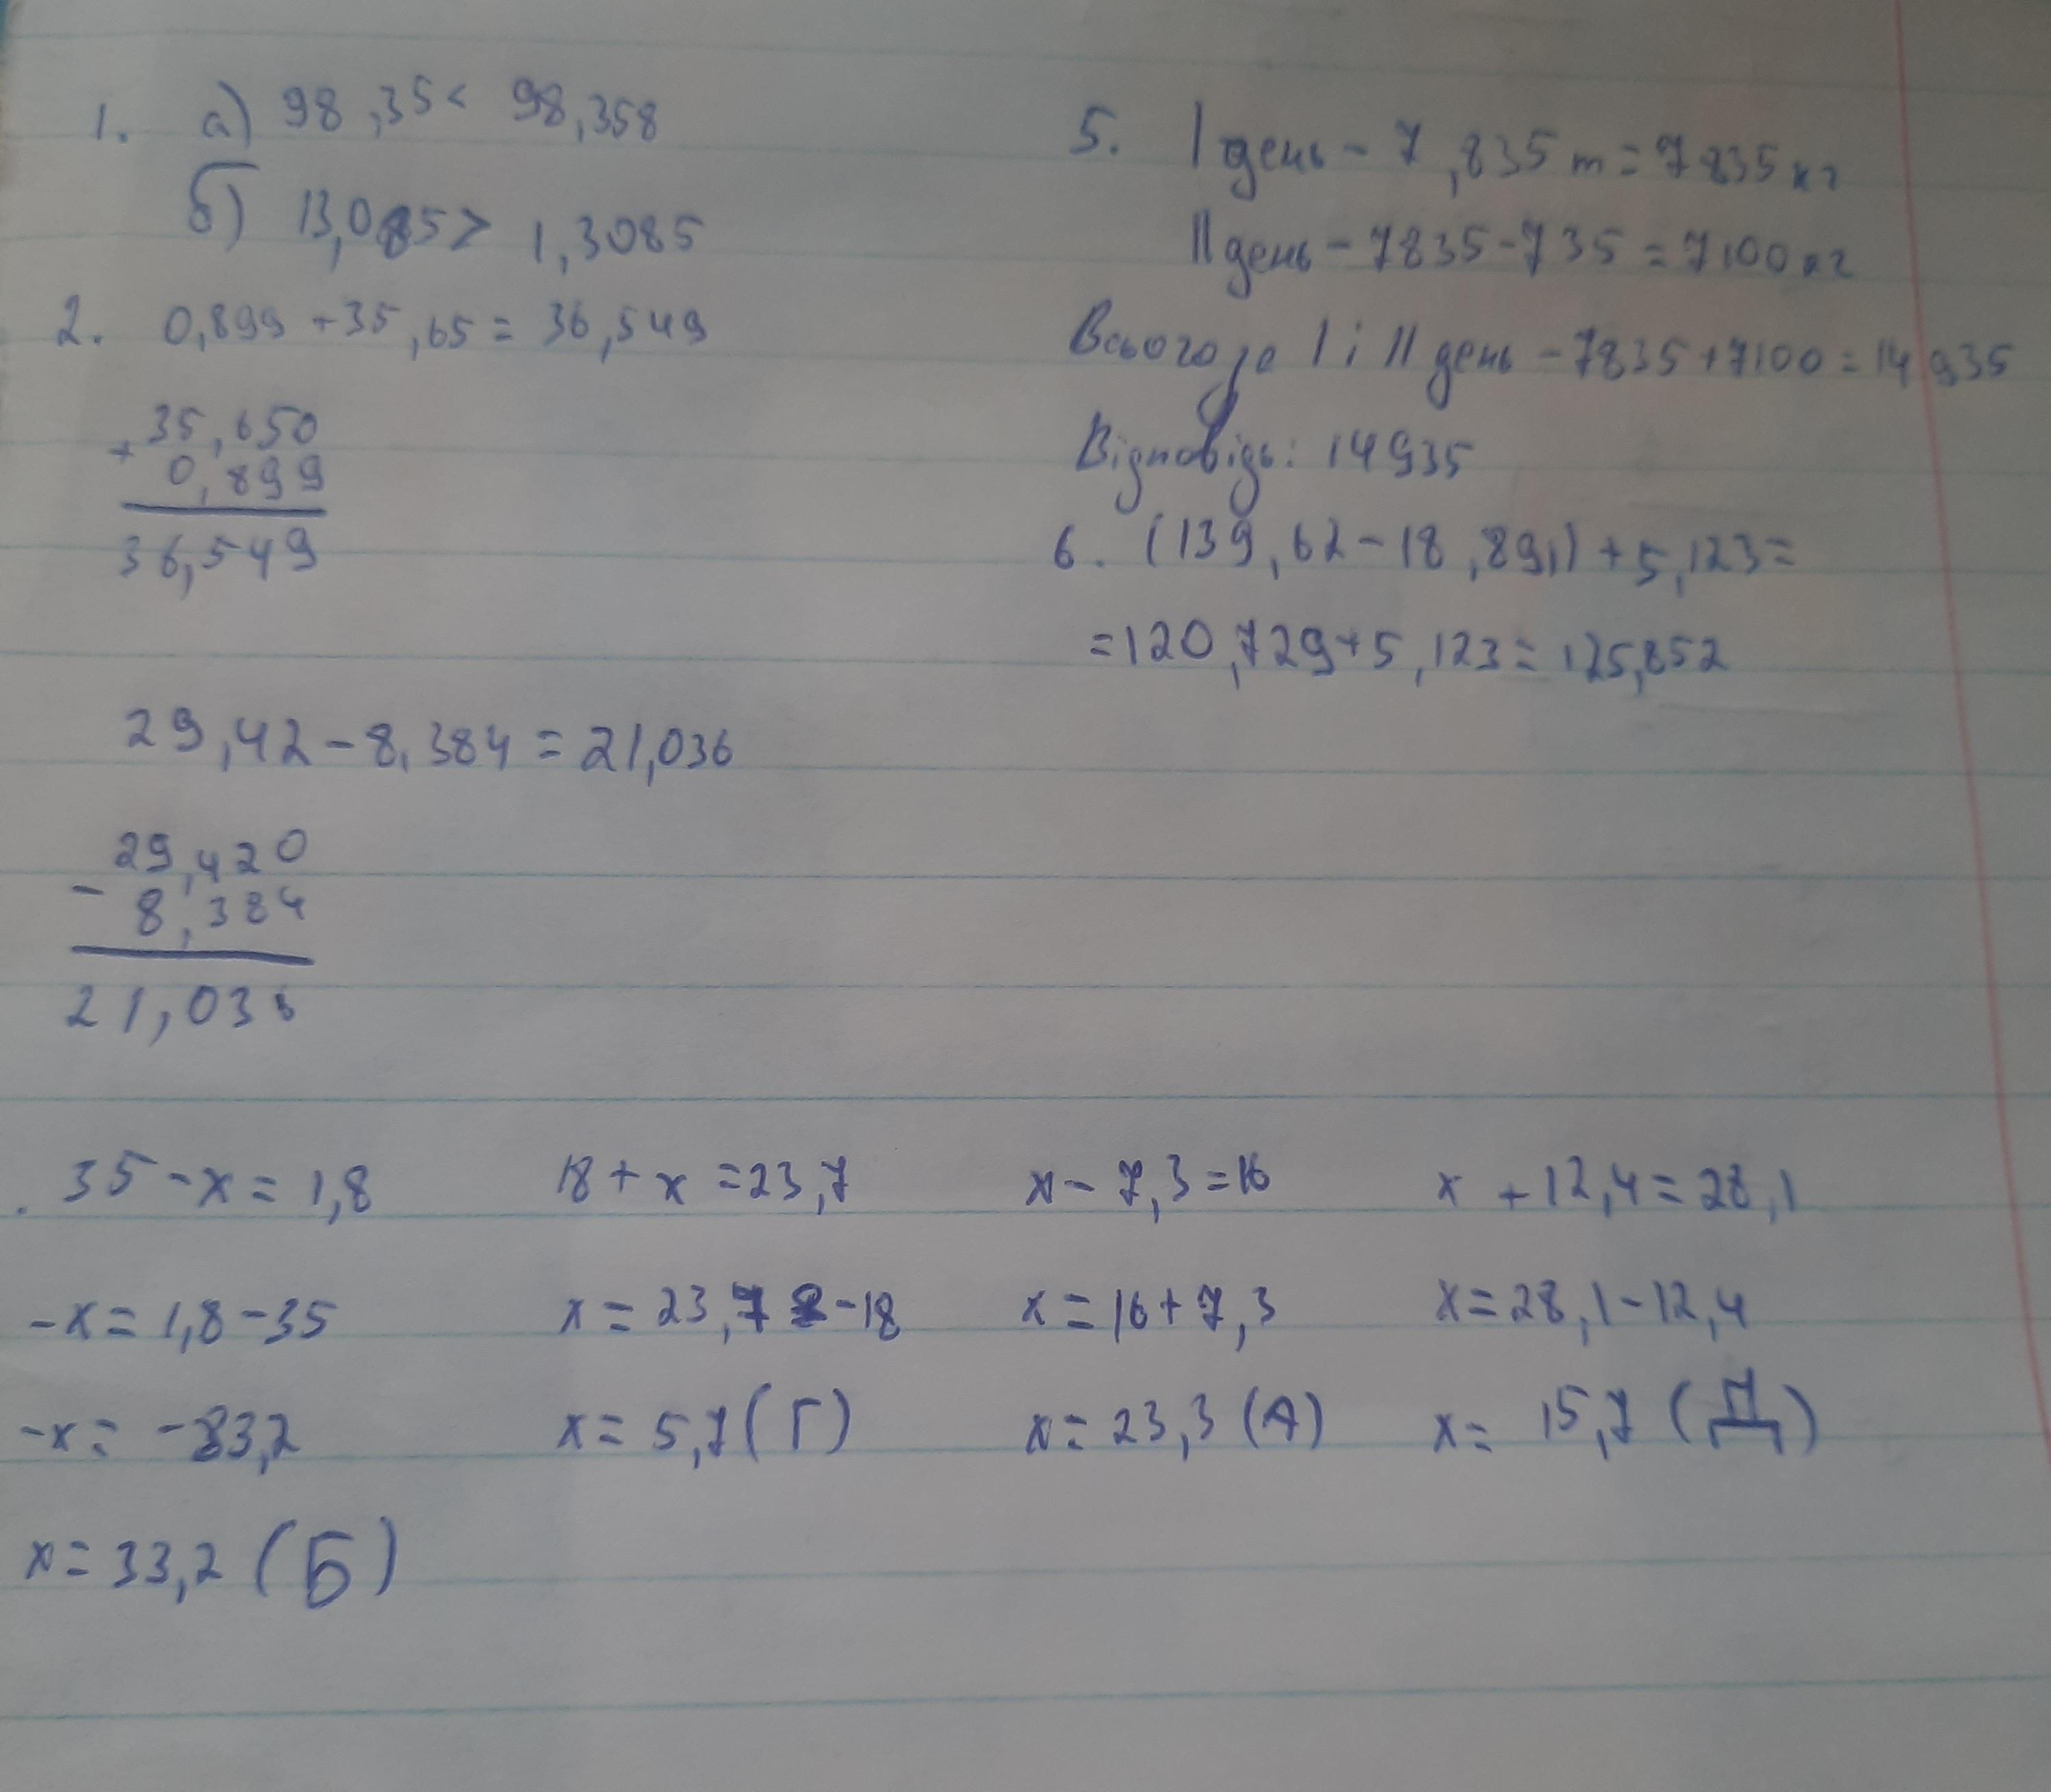 1. а) 98,35 < 98,358
б) 13,085 > 1,3085
2. 0,899 + 35,65 = 36,549
+ 35,650
0,899
36,549
29,42 - 8,384 = 21,036
- 29,420
8,384
21,036
. 35 - x = 1,8
-x = 1,8 - 35
-x = -33,2
x = 33,2 (Б)
18 + x = 23,7
x = 23,7 - 18
x = 5,7 (Г)
x - 7,3 = 16
x = 16 + 7,3
x = 23,3 (А)
x + 12,4 = 28,1
x = 28,1 - 12,4
x = 15,7 (Д)
5. I день - 7,835 т = 7835 кг
II день - 7835 - 735 = 7100 кг
Всього за I і II день - 7835 + 7100 = 14935
Відповідь: 14935
6. (139,62 - 18,891) + 5,123 =
= 120,729 + 5,123 = 125,852